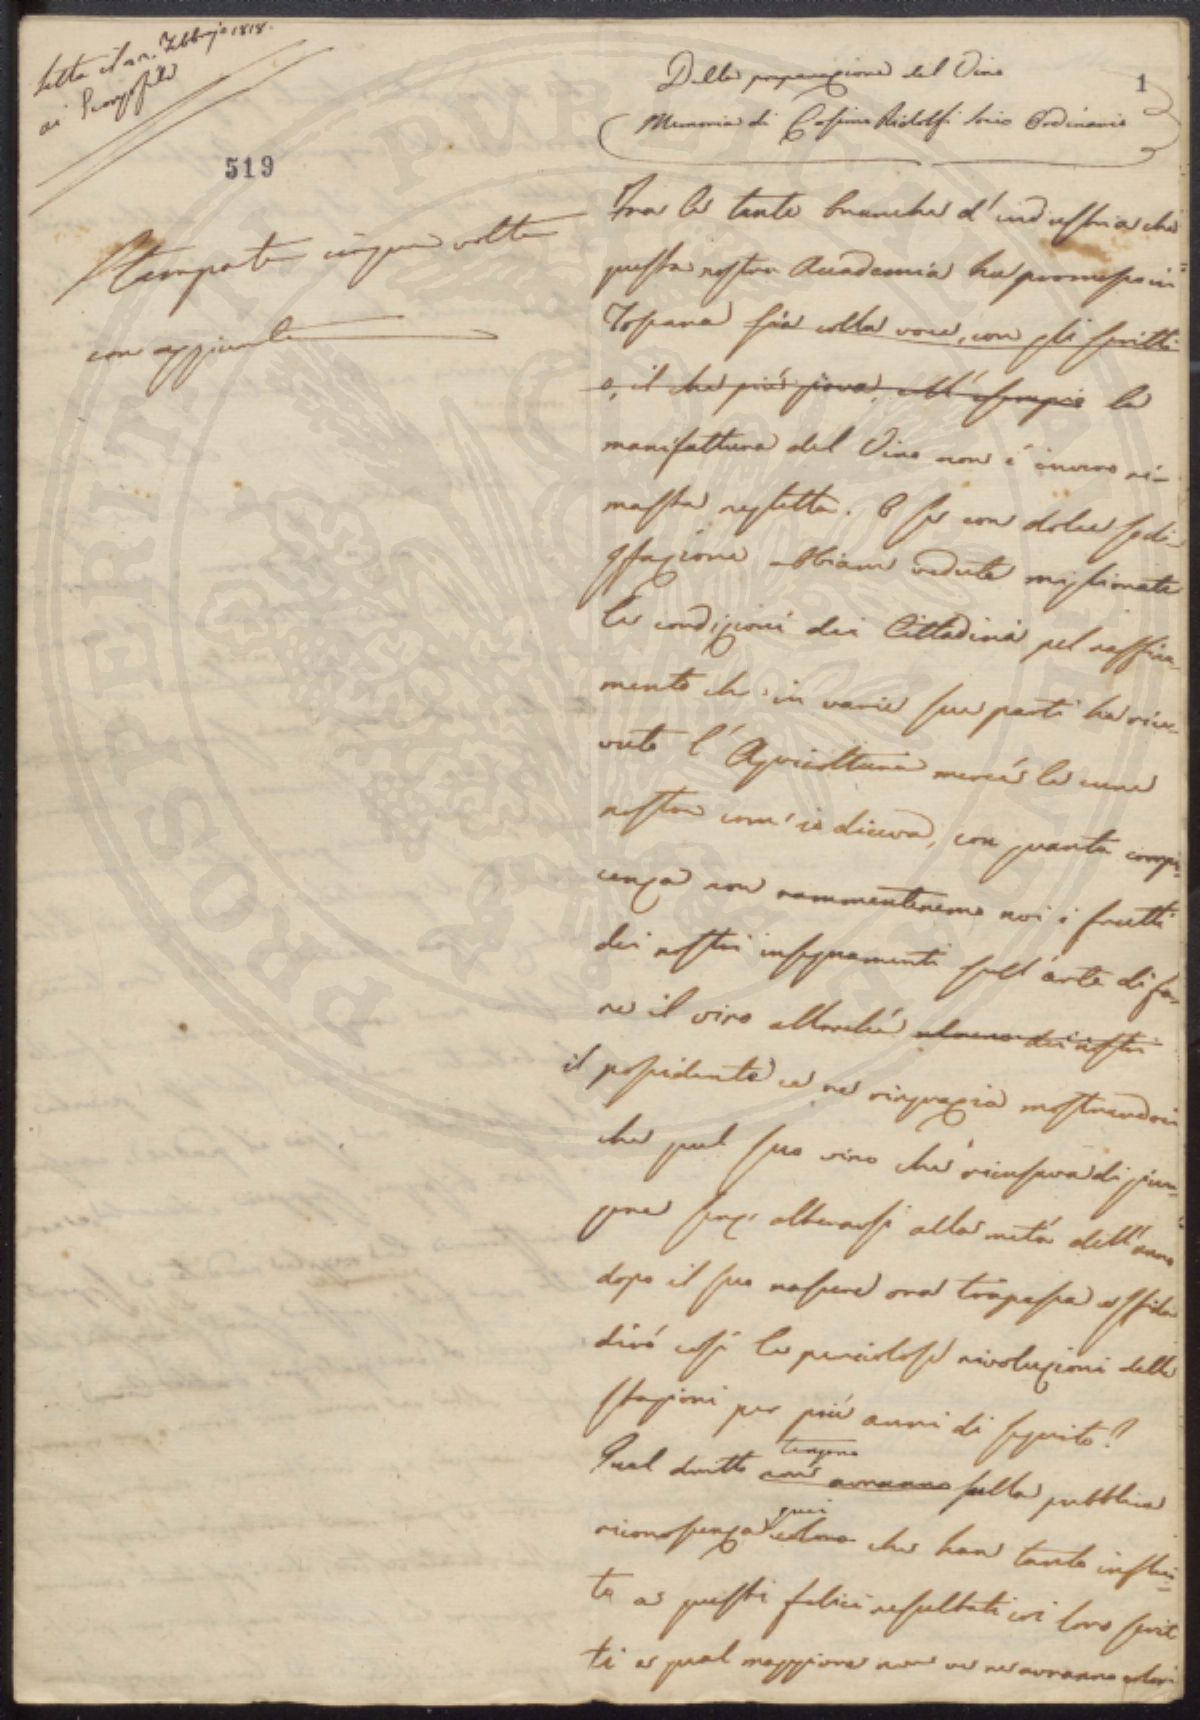 Letta il a 2. Febbrajo 1818.
ai Georgofili
519
1
Stampata cinque volte
con aggiunte
Della preparazione del Vino
Memoria di Cosimo Ridolfi Socio Ordinario
Fra le tante branche d'industria che
questa nostra Accademia ha promosso in
Toscana sia colla voce, con gli scritti
o, il che più giova, coll'esempio la
manifattura del Vino non è invero ri-
masta negletta. E se con dolce sodi-
sfazione abbiam vedute migliorate
le condizioni dei Cittadini pel raffina-
mento che in varie sue parti ha rice-
vuto l'Agricoltura mercè le cure
nostre com'io diceva, con quanta compia-
cenza non rammenteremo noi i frutti
dei nostri insegnamenti sull'arte di fa-
re il vino allorchè almeno dei nostri
il possidente ce ne ringrazia mostrandoci
che quel suo vino che ricusava di giun-
gere senz'alterarsi alla metà dell'anno
dopo il suo nascere ora trapassa e sfida
dirò così le perniciose rivoluzioni delle
stagioni per più anni di seguito?
Qual dritto non avranno sulla pubblica
tengono
riconoscenza coloro che han tanto influi-
quei
to a questi felici resultati coi loro scrit
ti e qual maggiore non ve ne avranno coloro
PROSPERITATI PUBLICAE AUGENDAE